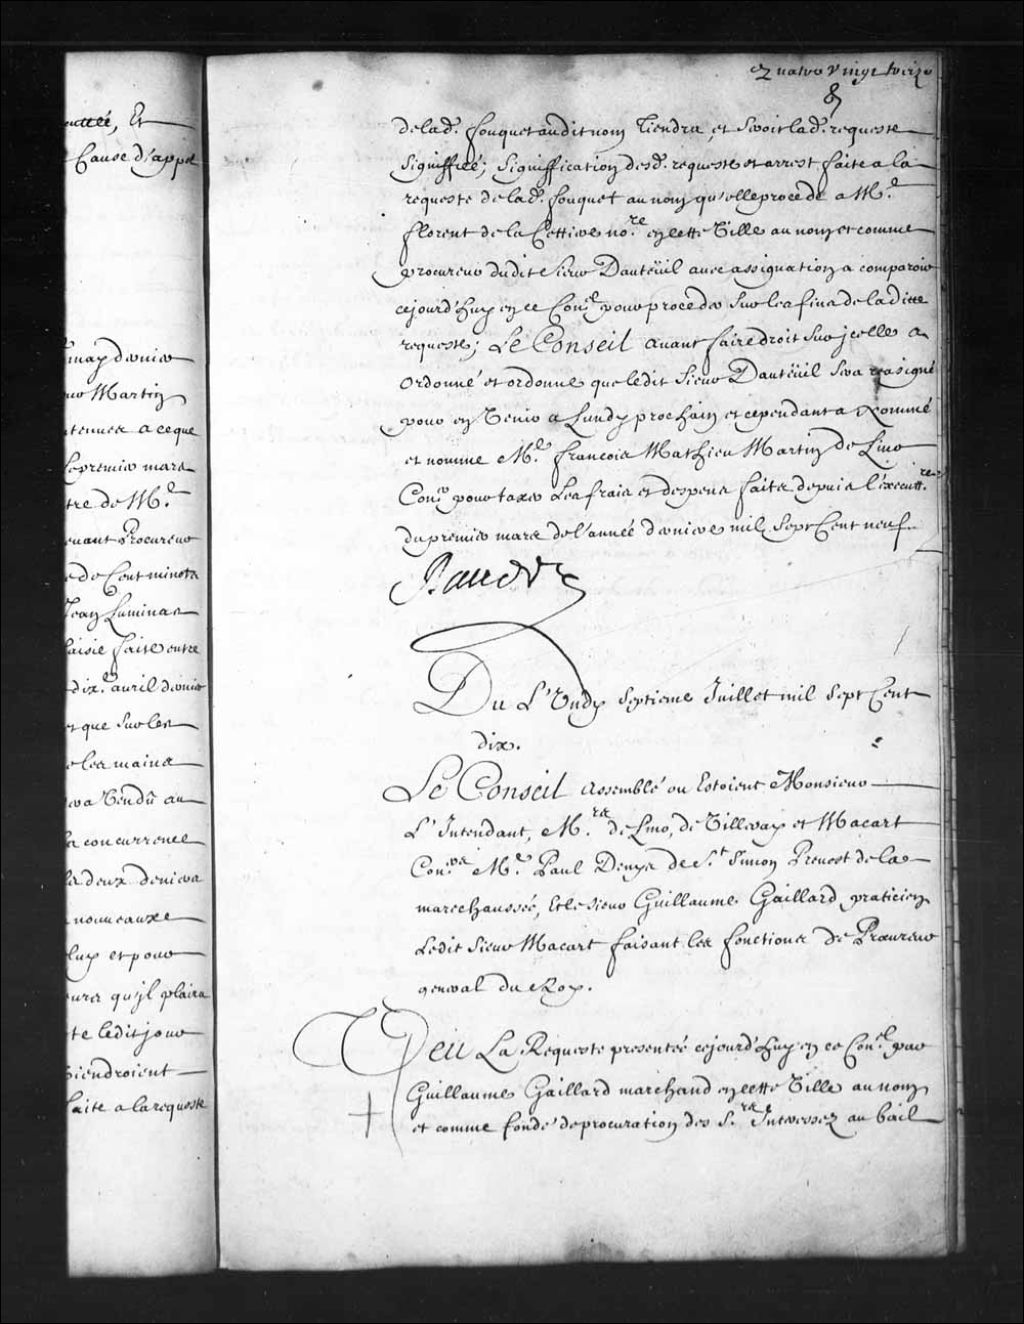 uttéé, Et
Cause d'appel
may dernier
Martin
tenues a ce que
le premier mars
tre de Mr.
euant Procureur
e de Cent minots
Jean Luminas
saisie faite entre
dixe. auril dernier
et que sur les
e les mains
sera Vendû au
la concurrence
la deux deniers
nouueauxe
plus et pour
qu'jl plaira
te ledit jour
viendroient
faite a la requeste
Quatre Vingt treize
de lad. fouquet audit nom tiendra, et seroit lad. requeste
signiffiéé; signiffication desd. requeste et arrest faite a la
requeste de lad. fouquet au nom qu'elle procede a Me.
florent de la Cettiere nore. en cette Ville au nom et comme
procureur dudit sieur Dauteüil auec assignation a comparoir
cejourd'huy en ce Conel. pour proceder sur les fins de laditte
requeste; Le Conseil auant faire droit sur jcelle a
ordonné et ordonne que ledit sieur Dauteüil sera reasigné
pour en Venir a Lundy prochain et cependant a Nommé
et nomme Me. françois Mathieu Martin de Lino
Coner. pour taxer les frais et despens faits depuis l'executre.
du premier mars de l'année derniere mil sept Cent neuf
Raudot
Du L'Undy septieme Juillet mil sept Cent
dix.
Le Conseil assemblé ou Estoient Monsieur
L'Intendant, Mrs. de Lino, de Villeray et Macart
Coners. Me. Paul Denys de St. Simon Preuost de la
marechausséé, Et le sieur Guillaume Gaillard praticien
Ledit sieur Macart faisant les fonctions de Procureur
general du Roy.
Veu La Requeste presentéé cejourd'huy en ce Conel. par
Guillaume Gaillard marchand en cette Ville au nom
et comme fondé de procuration des Srs. Interessez au bail